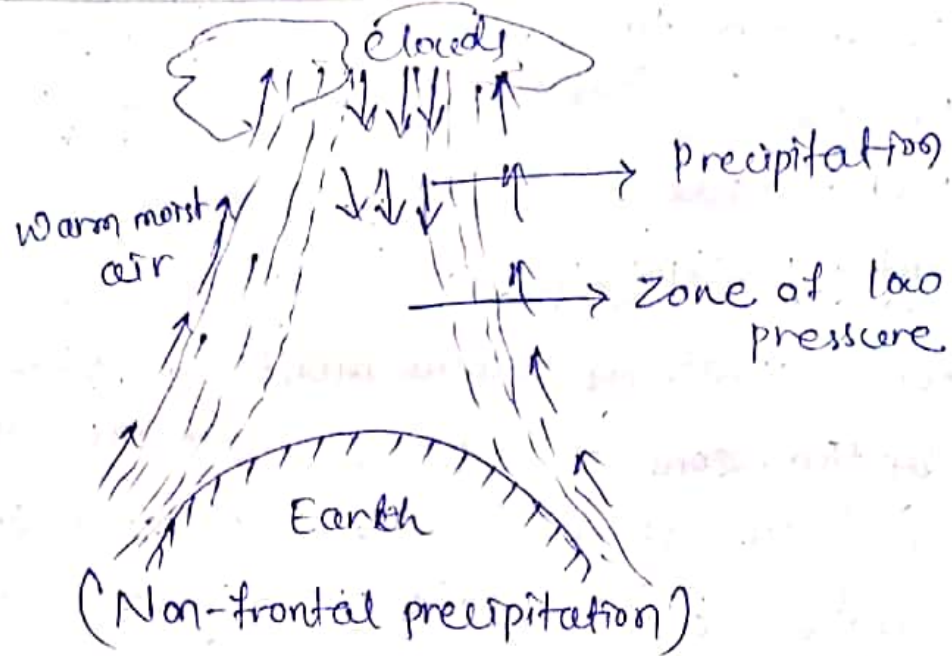 Clouds
Precipitation
Warm moist
air
Zone of low
pressure
Earth
(Non-frontal precipitation)